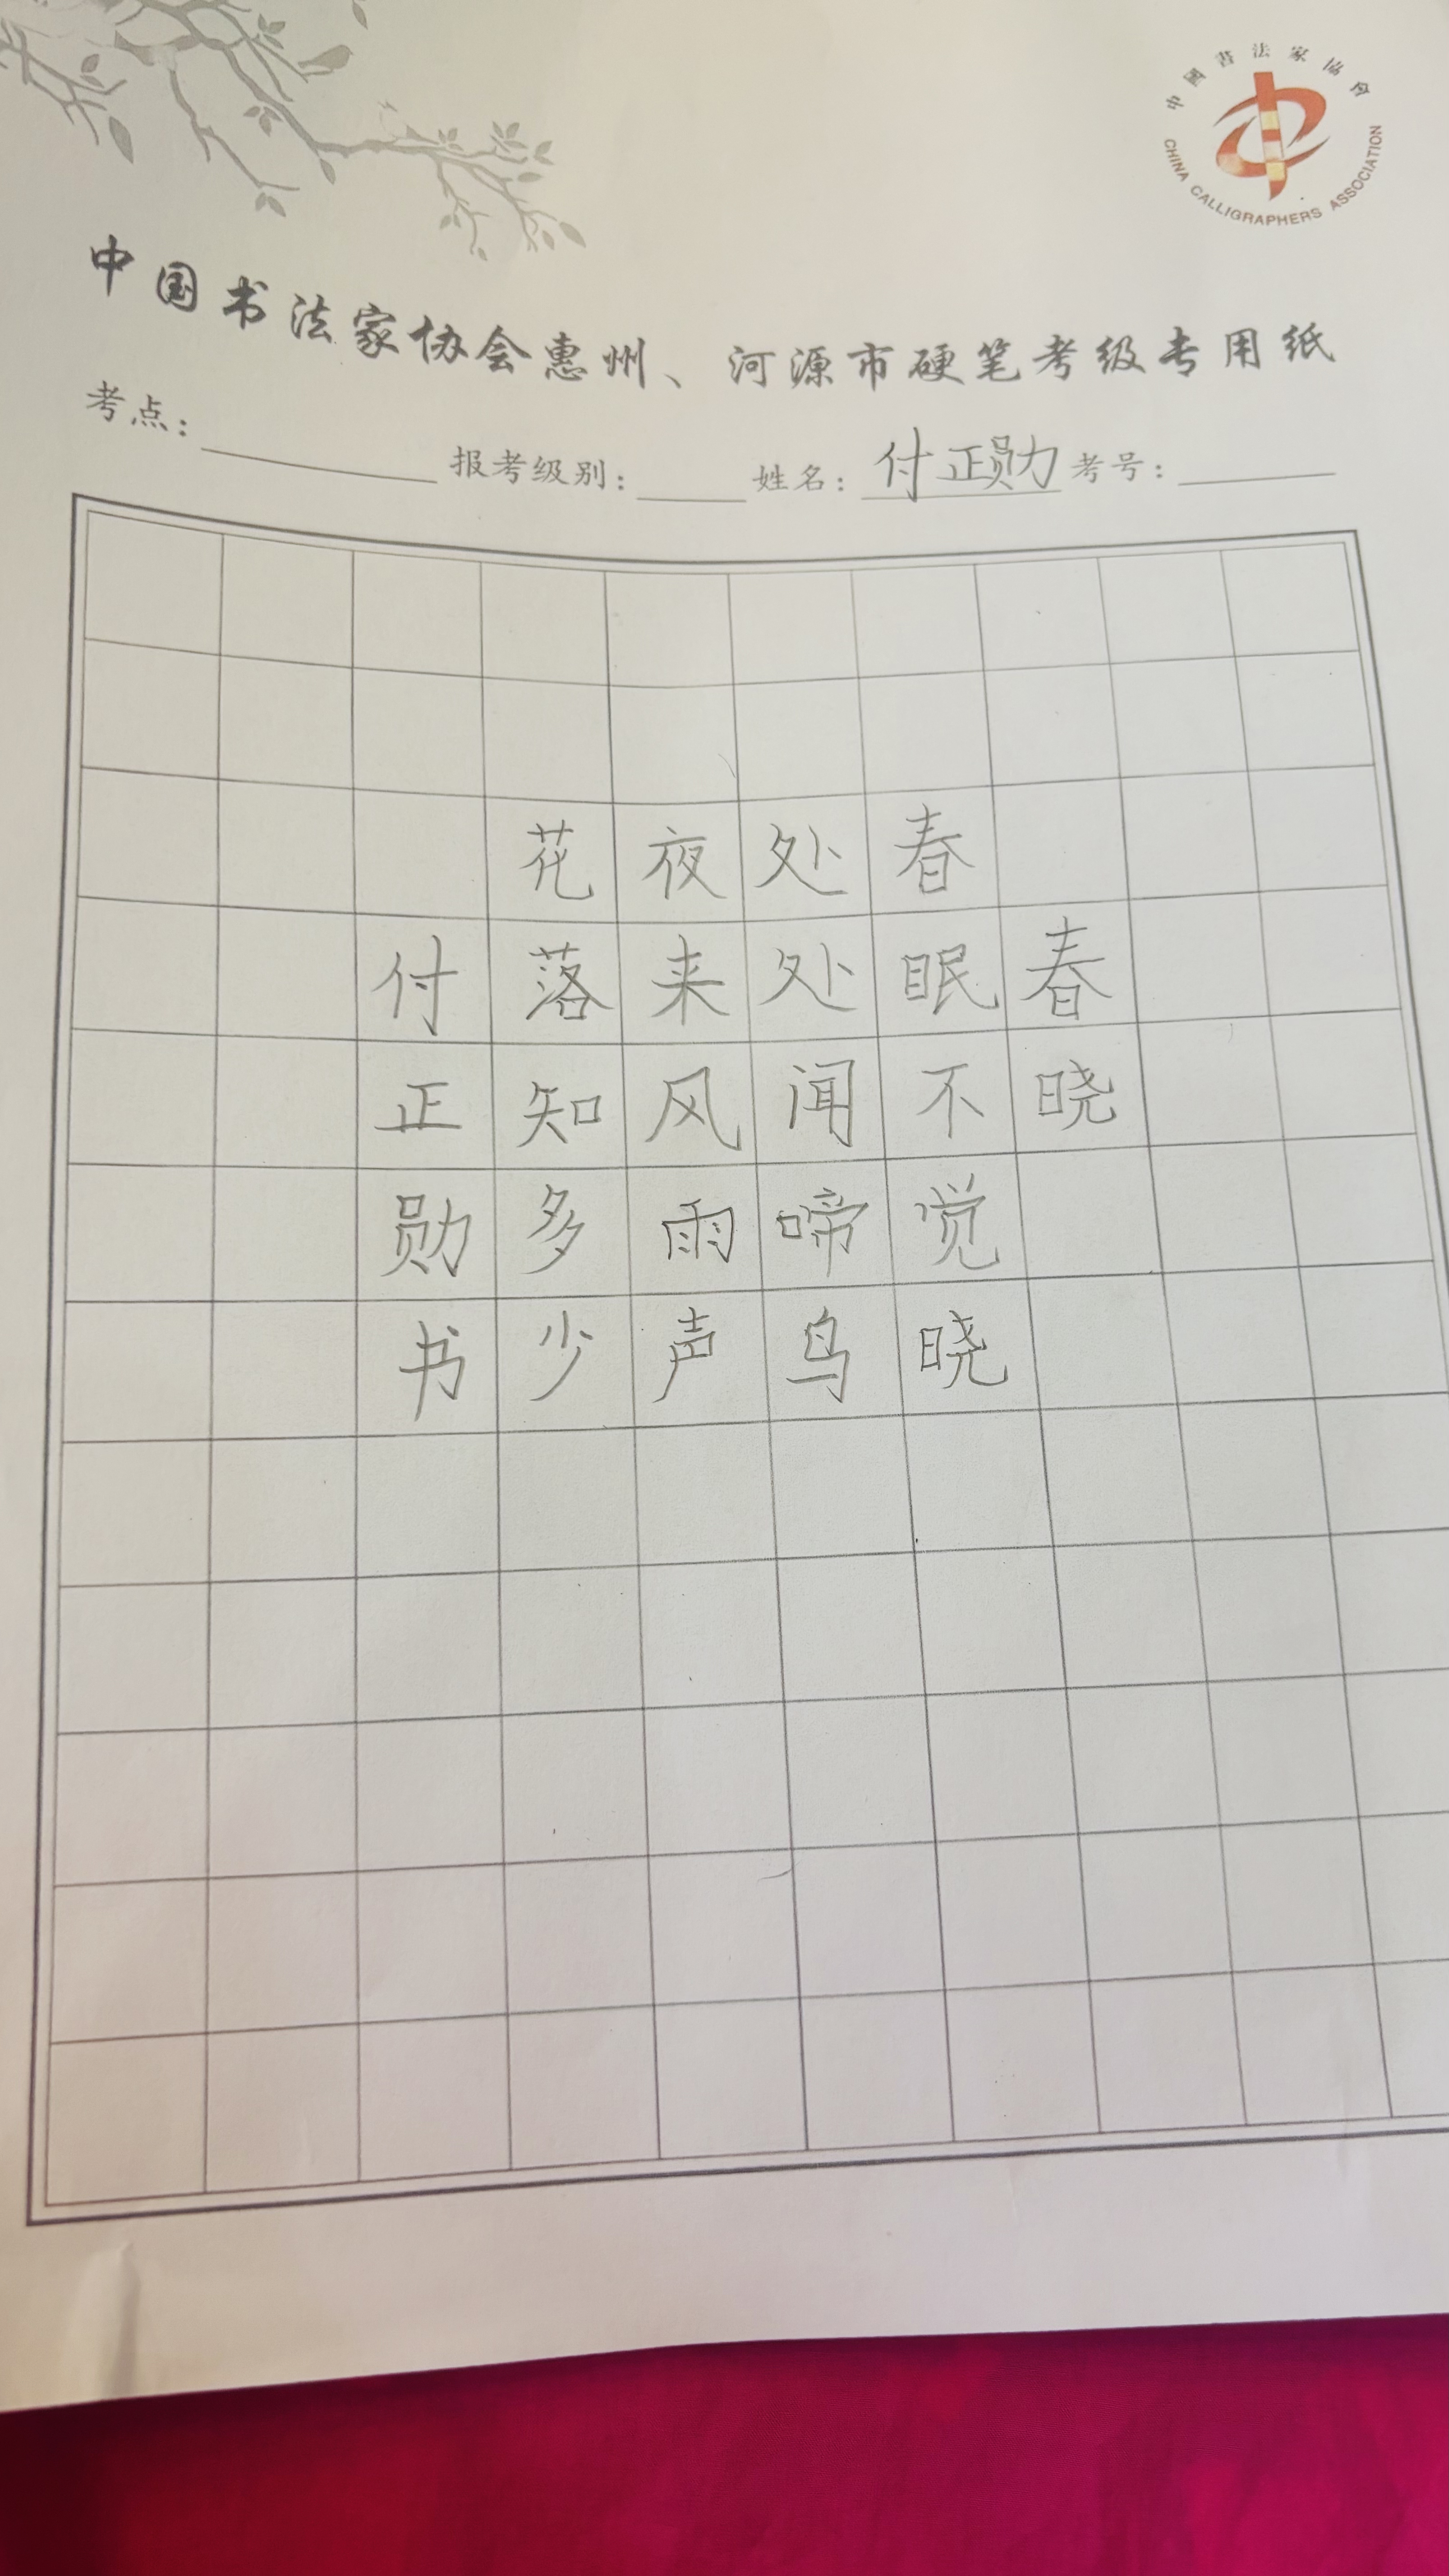 中國書法家協会
CHINA CALLIGRAPHERS ASSOCIATION
中国书法家协会惠州、河源市硬笔考级专用纸
考点: 报考级别: 姓名: 付正勋 考号:
春晓
春眠不觉晓
处处闻啼鸟
夜来风雨声
花落知多少
付正勋书